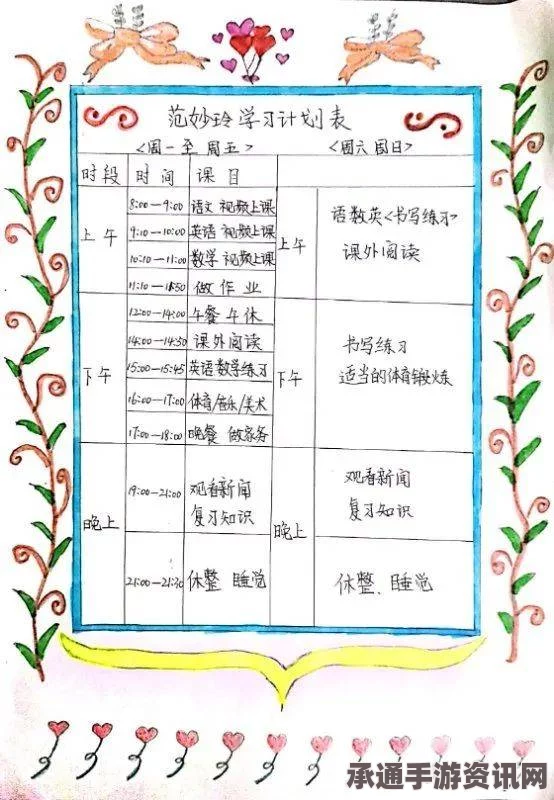 范妙玲学习计划表
<周一至周五> <周六周日>
时段 时间 课目
上午 8:00—9:00 语文 视频上课
9:10—10:00 英语 视频上课
10:10—11:00 数学 视频上课
11:10—11:50 做作业
上午 语数英<书写练习>
课外阅读
下午 12:00—14:00 午餐 午休
14:00—14:50 课外阅读
15:00—15:45 英语数学练习
16:00—17:00 体育/音乐/美术
17:00—18:00 晚餐 做家务
下午 书写练习
适当的体育锻炼
晚上 19:00—21:00 观看新闻
复习知识
21:00—21:30 休整 睡觉
晚上 观看新闻
复习知识
休整、睡觉
承通手游资讯网